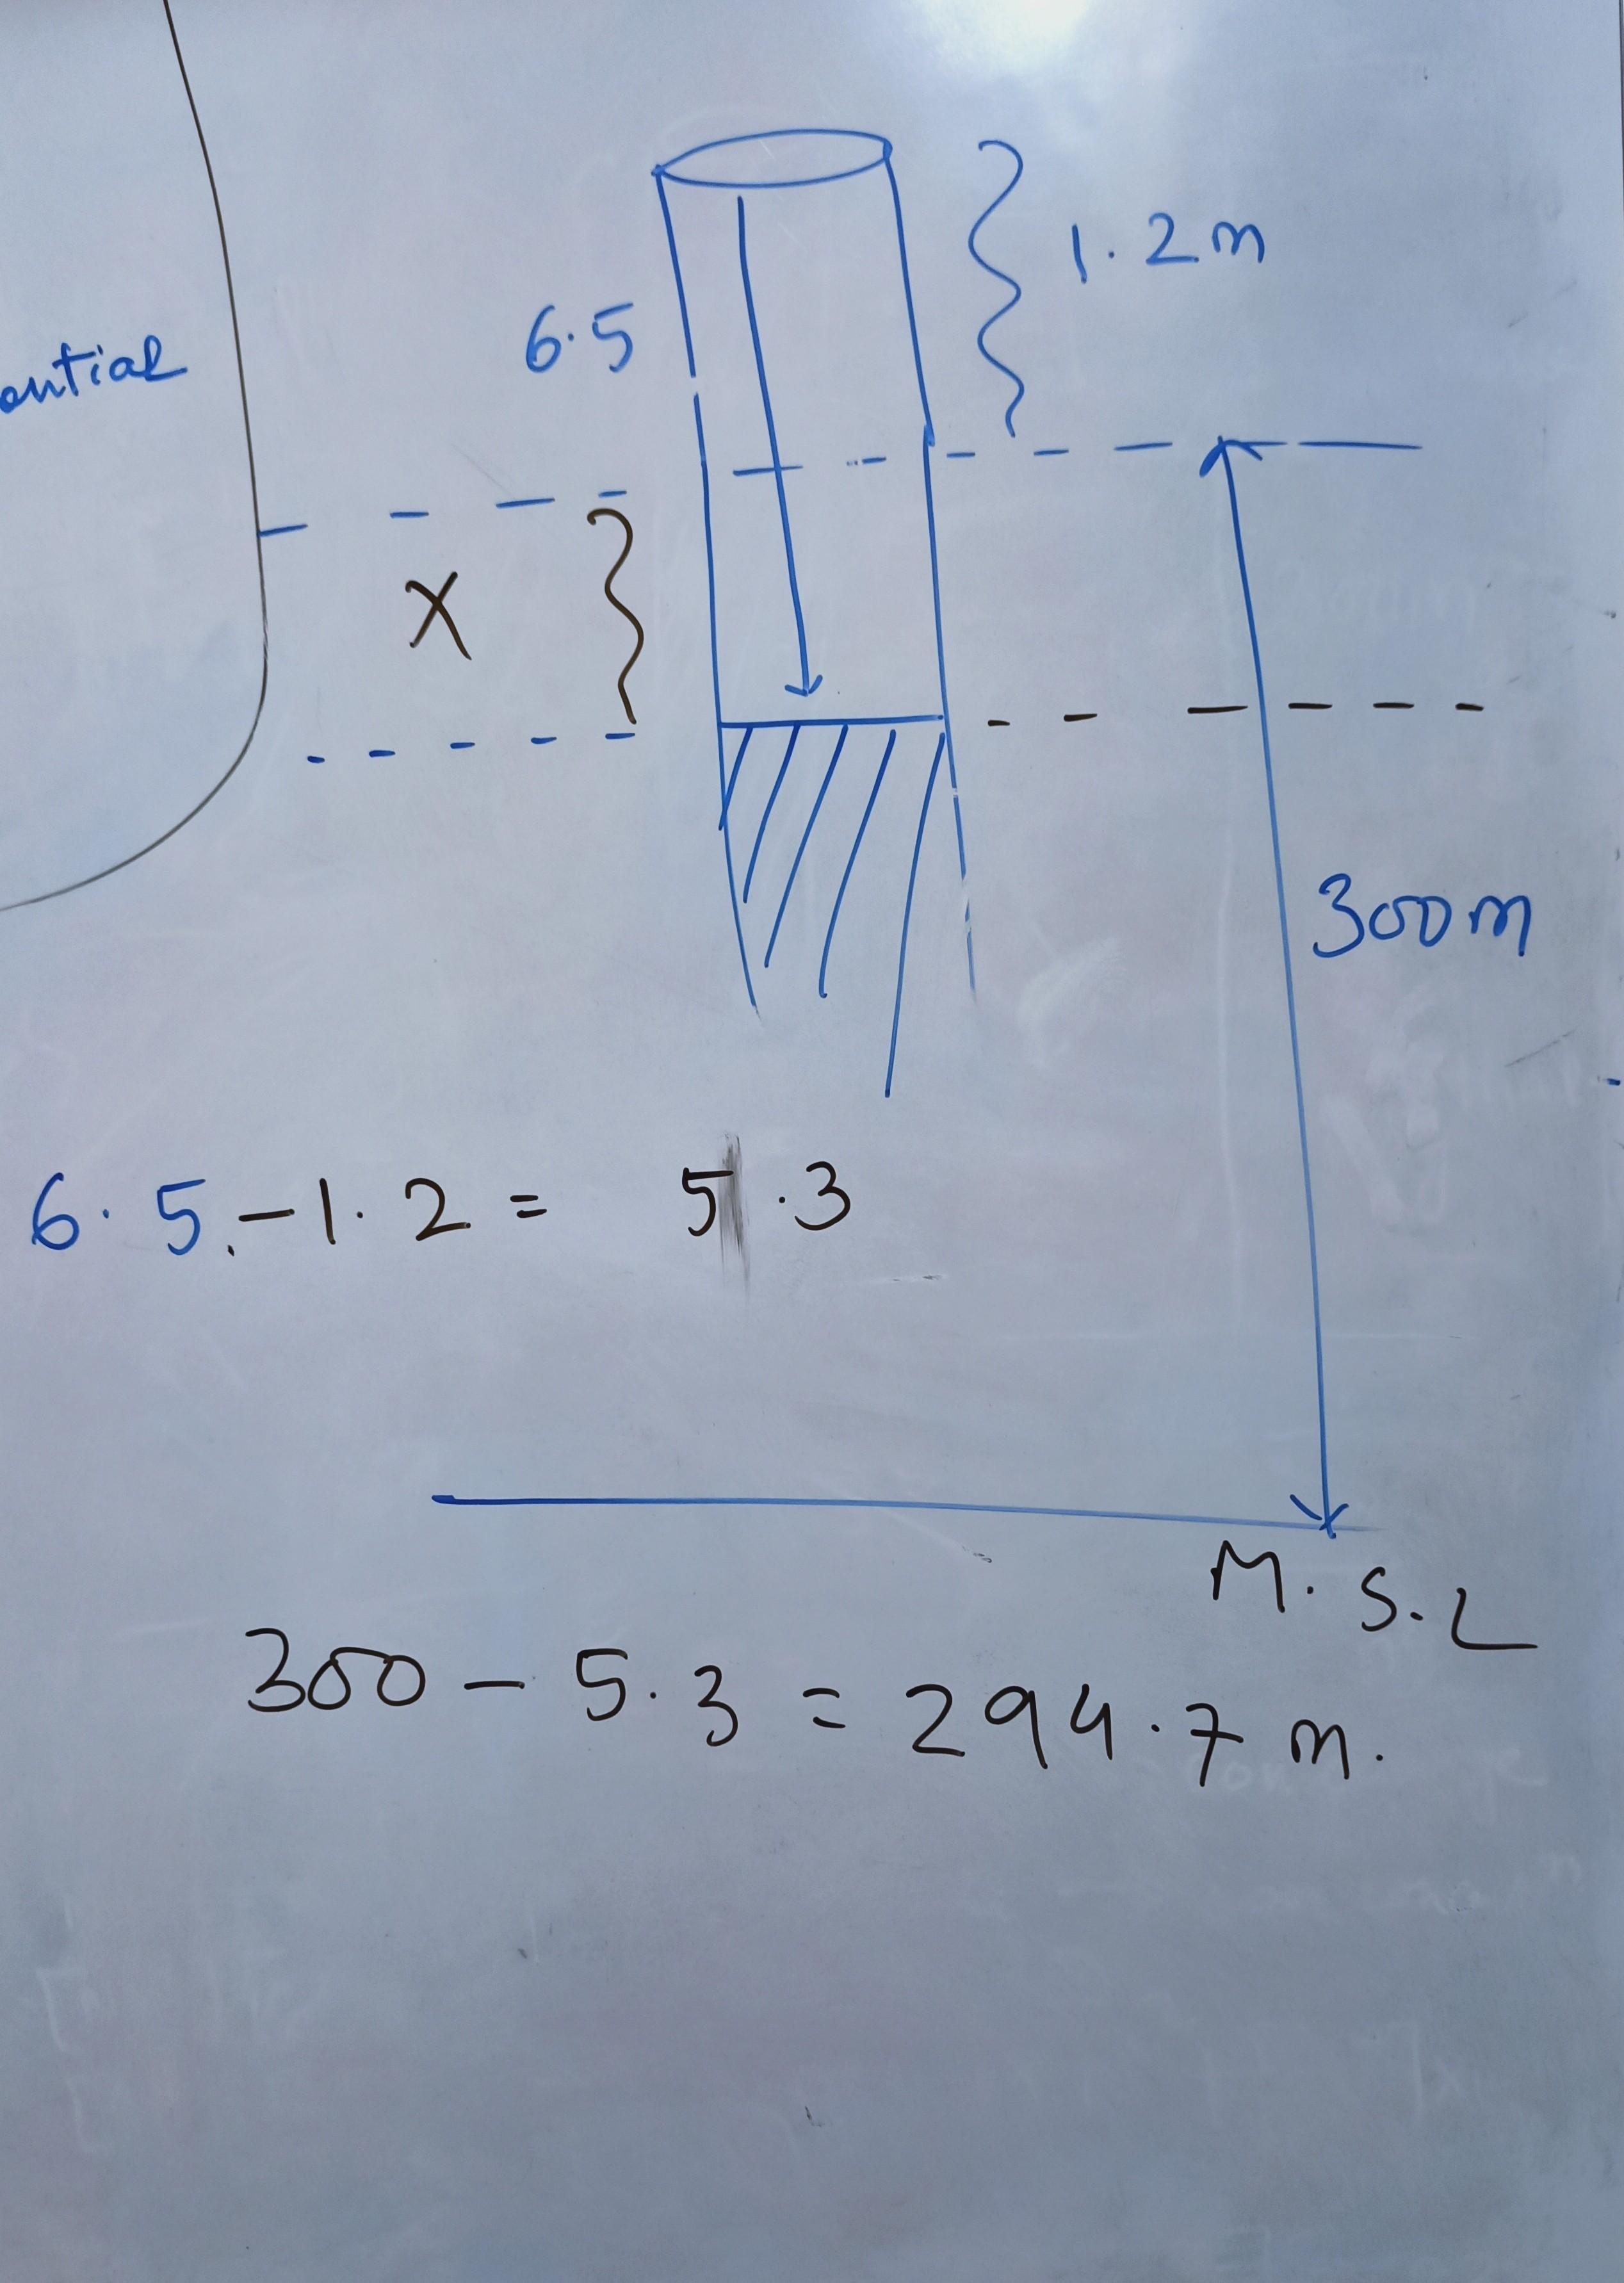 1.2m
6.5
ential
X
300m
6.5-1.2 = 5.3
M.S.L
300 - 5.3 = 294.7 m.